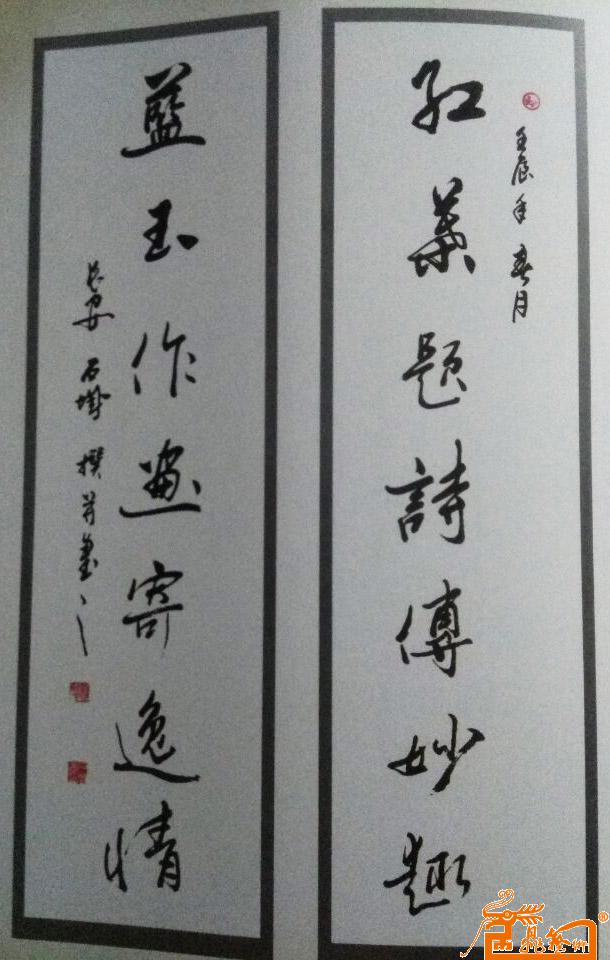 壬辰年 春月
紅葉題詩傳妙趣
藍玉作畫寄逸情
長安 石
撰并書